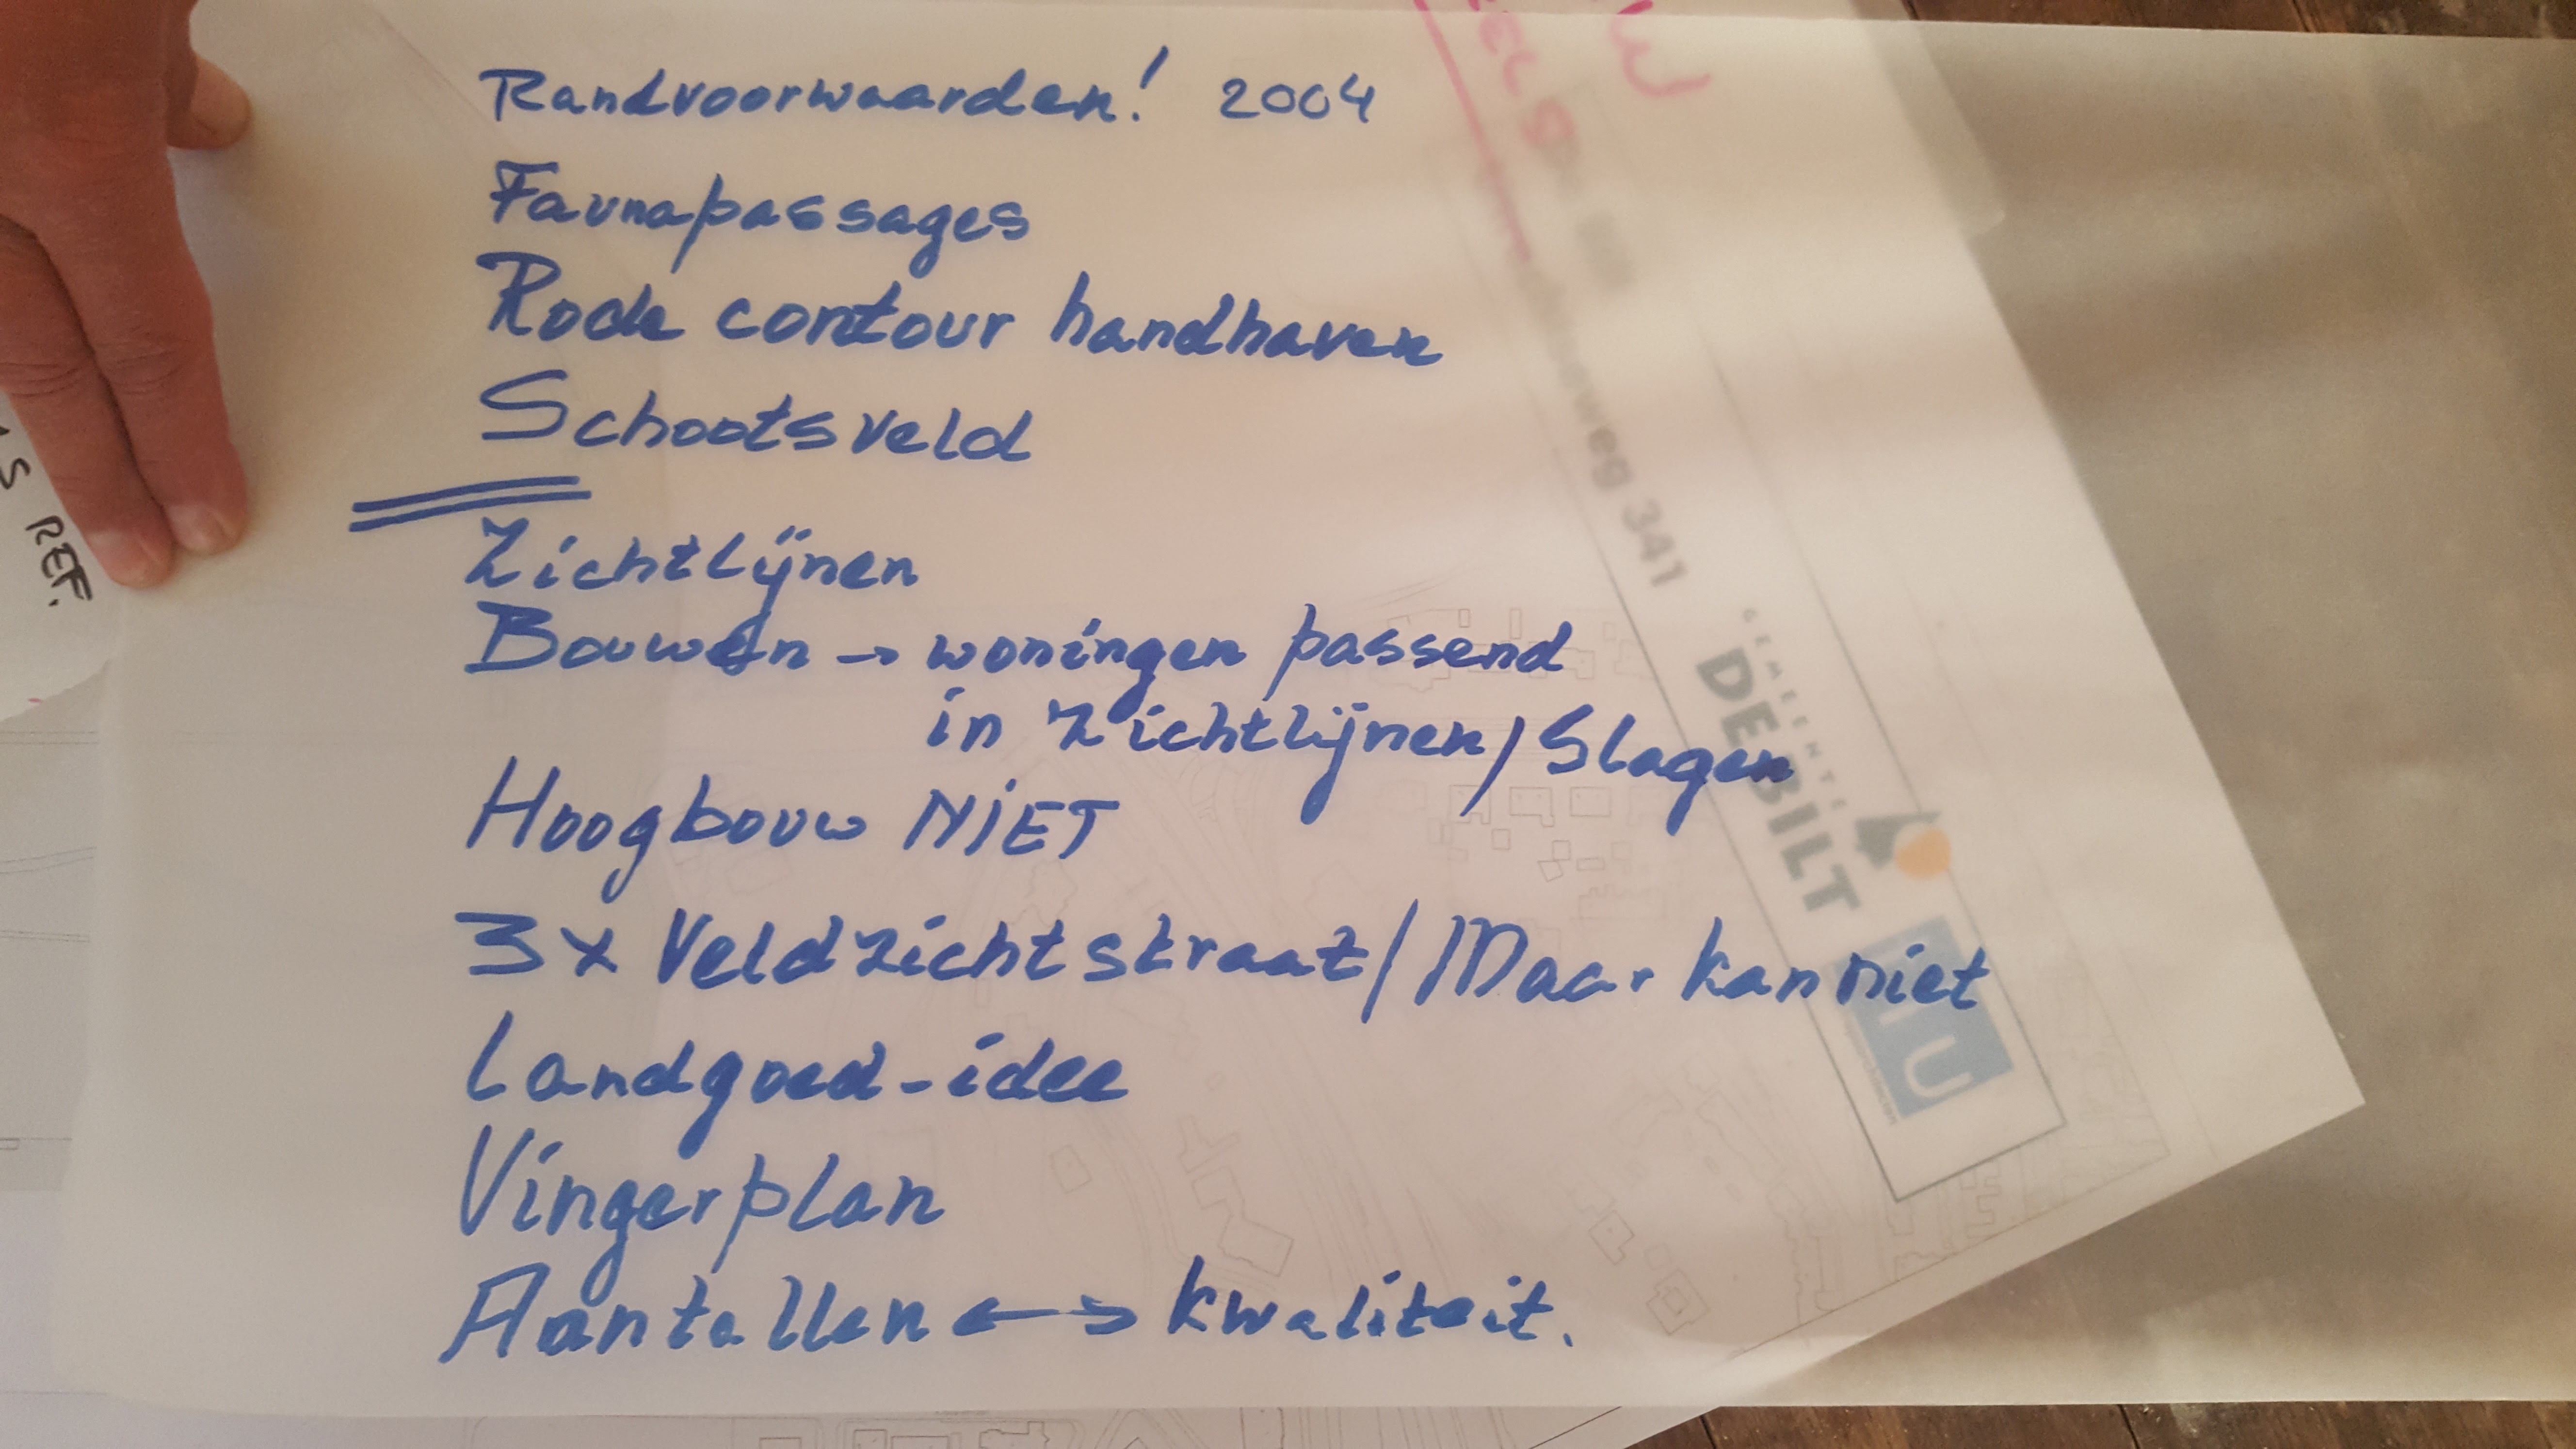 Randvoorwaarden! 2004
Faunapassages
Rode contour handhaven
Schootsveld
Zichtlijnen
Bouwen → woningen passend
in Zichtlijnen/Slagen
Hoogbouw NIET
3x Veldzichtstraat/Maar kan niet
Landgoed-idee
Vingerplan
Aantallen ↔ kwaliteit.
REF.
weg 341
GEMEENTE
DE BILT
U